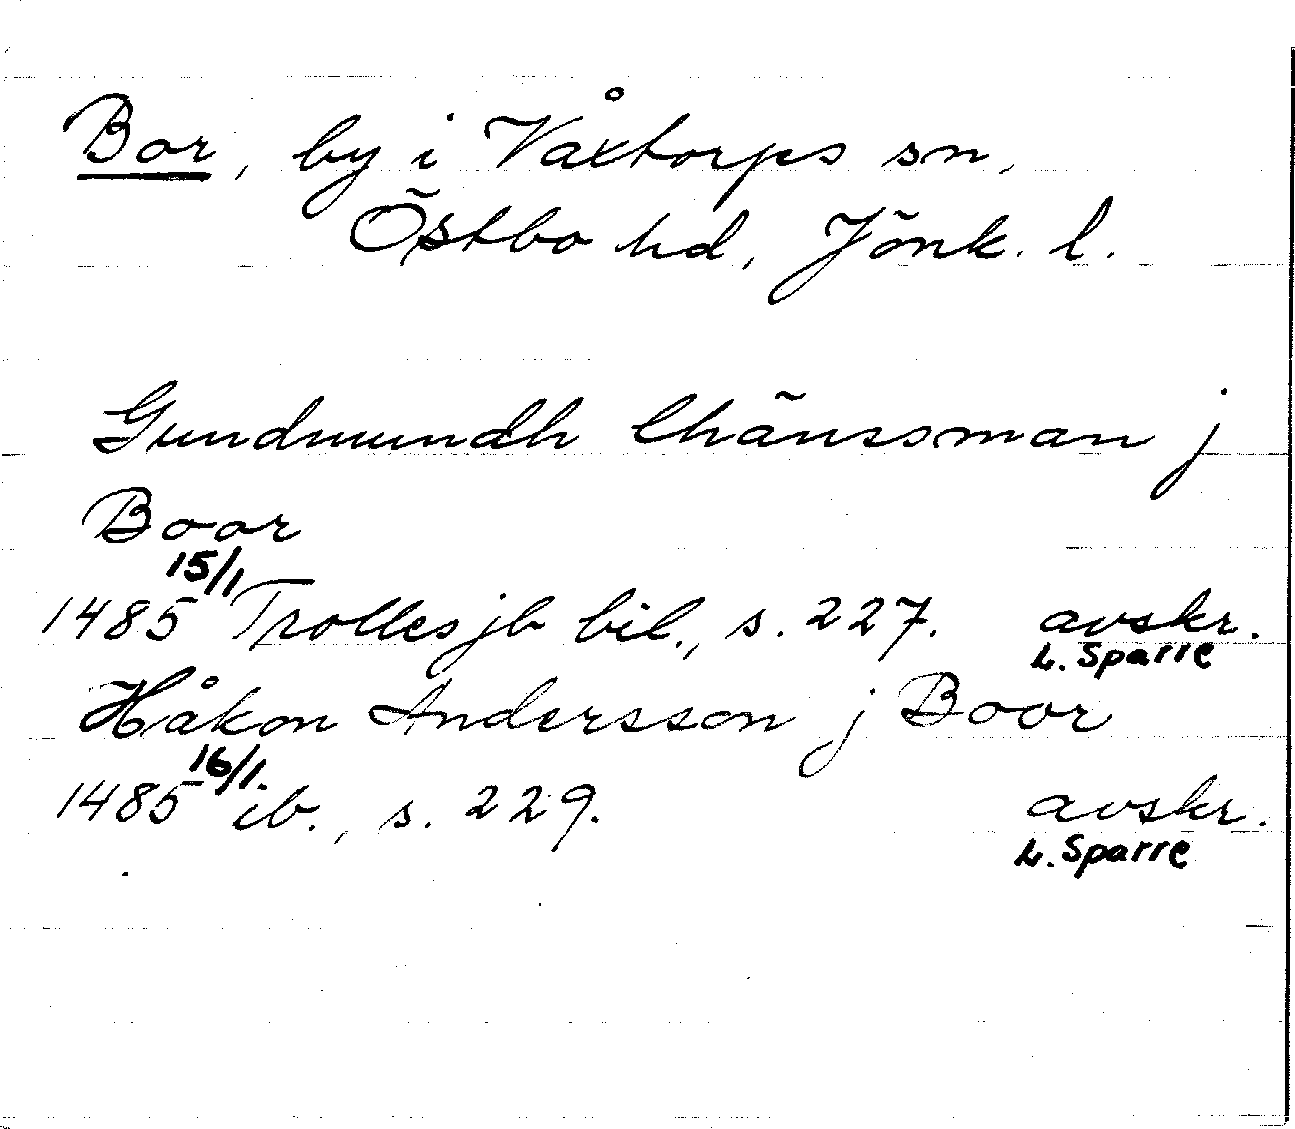 Bor, by i Våxtorps sn,
Östbo hd, Jönk. l.
Gundmundh lhänssman j
Boor
1485 15/1 Trolles jb bil., s. 227. avskr.
L. Sparre
Håkon Andersson j Boor
1485 16/1. ib., s. 229. avskr.
L. Sparre